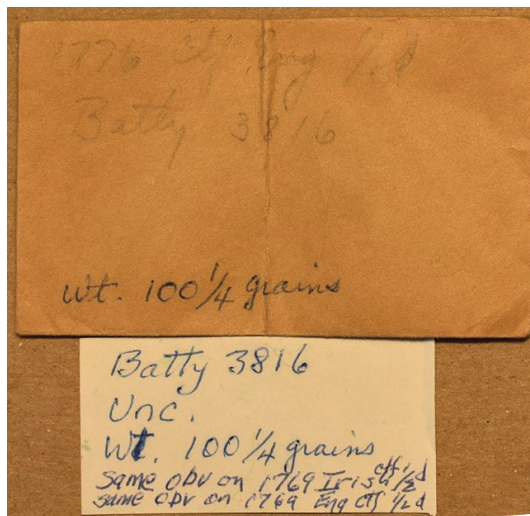 1776 Ctf Eng 1/2 d
Batty 3816
Wt. 100 1/4 grains
Batty 3816
Unc.
Wt. 100 1/4 grains
Same obv on 1769 Irish ctf 1/2 d
Same obv on 1769 Eng Ctf 1/2 d